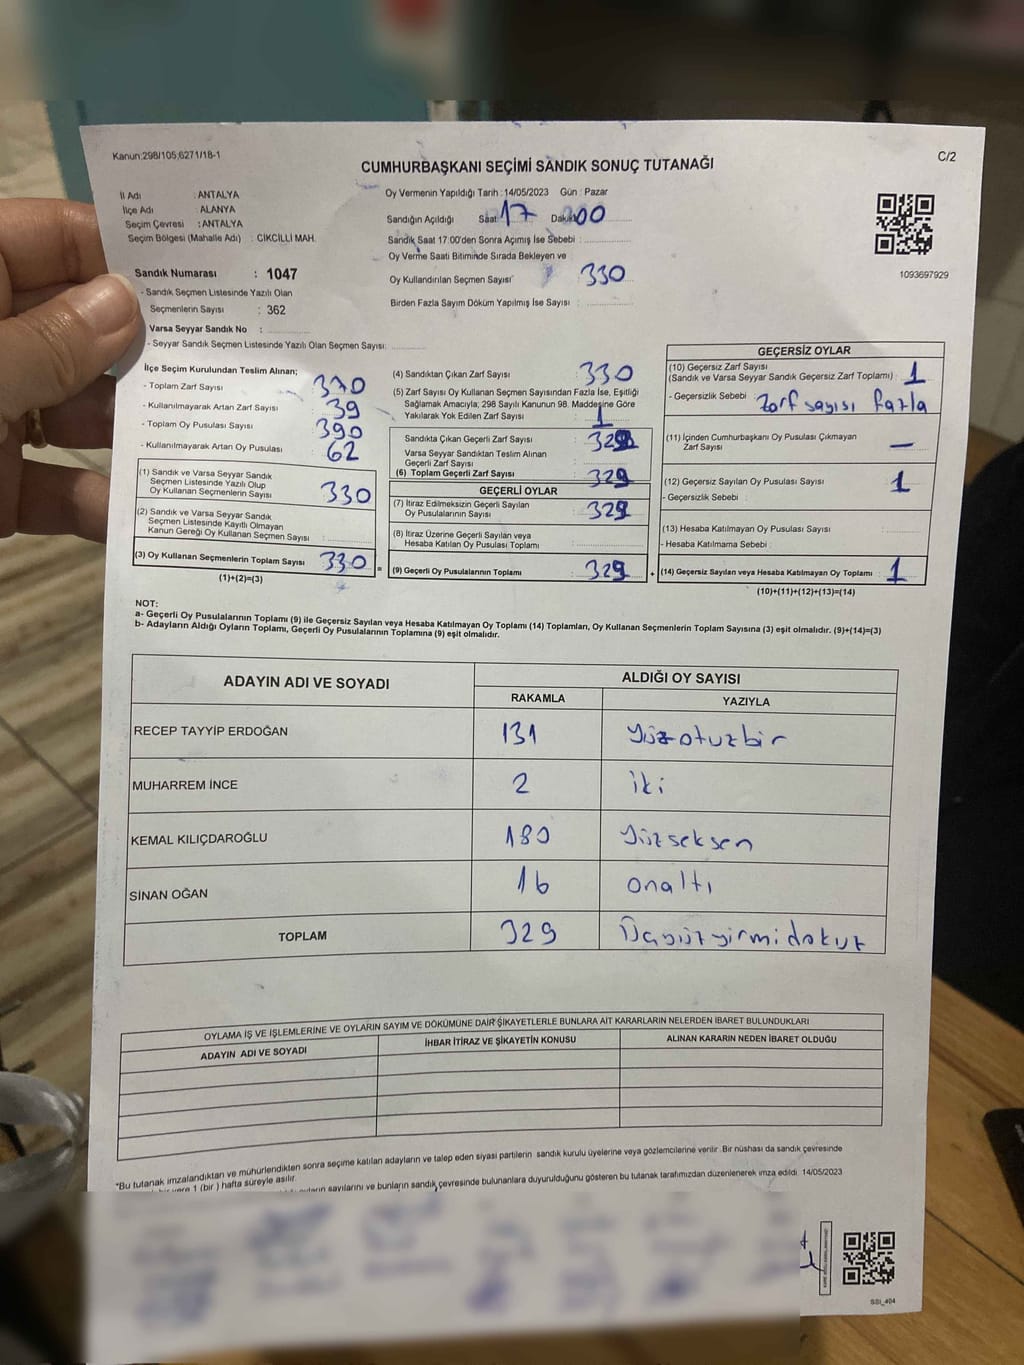 Kanun:298/105,6271/18-1
C/2
CUMHURBAŞKANI SEÇİMİ SANDIK SONUÇ TUTANAĞI
İl Adı : ANTALYA
İlçe Adı : ALANYA
Seçim Çevresi : ANTALYA
Seçim Bölgesi (Mahalle Adı) : CİKCİLLİ MAH.
Oy Vermenin Yapıldığı Tarih : 14/05/2023 Gün : Pazar
Sandığın Açıldığı Saat 17 Dakika 00
Sandık Saat 17:00'den Sonra Açımış İse Sebebi :
Oy Verme Saati Bitiminde Sırada Bekleyen ve
Oy Kullandırılan Seçmen Sayısı 330
Birden Fazla Sayım Döküm Yapılmış İse Sayısı :
1093697929
Sandık Numarası : 1047
- Sandık Seçmen Listesinde Yazılı Olan
Seçmenlerin Sayısı : 362
Varsa Seyyar Sandık No :
- Seyyar Sandık Seçmen Listesinde Yazılı Olan Seçmen Sayısı:
İlçe Seçim Kurulundan Teslim Alınan;
- Toplam Zarf Sayısı : 370
- Kullanılmayarak Artan Zarf Sayısı : 39
- Toplam Oy Pusulası Sayısı : 390
- Kullanılmayarak Artan Oy Pusulası : 62
(1) Sandık ve Varsa Seyyar Sandık
Seçmen Listesinde Yazılı Olup
Oy Kullanan Seçmenlerin Sayısı : 330
(2) Sandık ve Varsa Seyyar Sandık
Seçmen Listesinde Kayıtlı Olmayan
Kanun Gereği Oy Kullanan Seçmen Sayısı :
(3) Oy Kullanan Seçmenlerin Toplam Sayısı 330
(1)+(2)=(3)
(4) Sandıktan Çıkan Zarf Sayısı : 330
(5) Zarf Sayısı Oy Kullanan Seçmen Sayısından Fazla İse, Eşitliği
Sağlamak Amacıyla; 298 Sayılı Kanunun 98. Maddesine Göre
Yakılarak Yok Edilen Zarf Sayısı : 1
Sandıkta Çıkan Geçerli Zarf Sayısı : 329
Varsa Seyyar Sandıktan Teslim Alınan
Geçerli Zarf Sayısı :
(6) Toplam Geçerli Zarf Sayısı : 329
GEÇERLİ OYLAR
(7) İtiraz Edilmeksizin Geçerli Sayılan
Oy Pusulalarının Sayısı : 329
(8) İtiraz Üzerine Geçerli Sayılan veya
Hesaba Katılan Oy Pusulası Toplamı :
= (9) Geçerli Oy Pusulalarının Toplamı : 329
GEÇERSİZ OYLAR
(10) Geçersiz Zarf Sayısı
(Sandık ve Varsa Seyyar Sandık Geçersiz Zarf Toplamı) : 1
- Geçersizlik Sebebi : Zarf sayısı fazla
(11) İçinden Cumhurbaşkanı Oy Pusulası Çıkmayan
Zarf Sayısı : —
(12) Geçersiz Sayılan Oy Pusulası Sayısı : 1
- Geçersizlik Sebebi :
(13) Hesaba Katılmayan Oy Pusulası Sayısı :
- Hesaba Katılmama Sebebi :
+ (14) Geçersiz Sayılan veya Hesaba Katılmayan Oy Toplamı : 1
(10)+(11)+(12)+(13)=(14)
NOT:
a- Geçerli Oy Pusulalarının Toplamı (9) ile Geçersiz Sayılan veya Hesaba Katılmayan Oy Toplamı (14) Toplamları, Oy Kullanan Seçmenlerin Toplam Sayısına (3) eşit olmalıdır. (9)+(14)=(3)
b- Adayların Aldığı Oyların Toplamı, Geçerli Oy Pusulalarının Toplamına (9) eşit olmalıdır.
ADAYIN ADI VE SOYADI
ALDIĞI OY SAYISI
RAKAMLA YAZIYLA
RECEP TAYYİP ERDOĞAN 131 Yüzotuzbir
MUHARREM İNCE 2 iki
KEMAL KILIÇDAROĞLU 180 Yüzseksen
SİNAN OĞAN 16 onaltı
TOPLAM 329 Üçyüzyirmidokuz
OYLAMA İŞ VE İŞLEMLERİNE VE OYLARIN SAYIM VE DÖKÜMÜNE DAİR ŞİKAYETLERLE BUNLARA AİT KARARLARIN NELERDEN İBARET BULUNDUKLARI
ADAYIN ADI VE SOYADI İHBAR İTİRAZ VE ŞİKAYETİN KONUSU ALINAN KARARIN NEDEN İBARET OLDUĞU
*Bu tutanak imzalandıktan ve mühürlendikten sonra seçime katılan adayların ve talep eden siyasi partilerin sandık kurulu üyelerine veya gözlemcilerine verilir. Bir nüshası da sandık çevresinde
yere 1 (bir) hafta süreyle asılır.
sayılarını ve bunların sandık çevresinde bulunanlara duyurulduğunu gösteren bu tutanak tarafımızdan düzenlenerek imza edildi. 14/05/2023
SSI_404